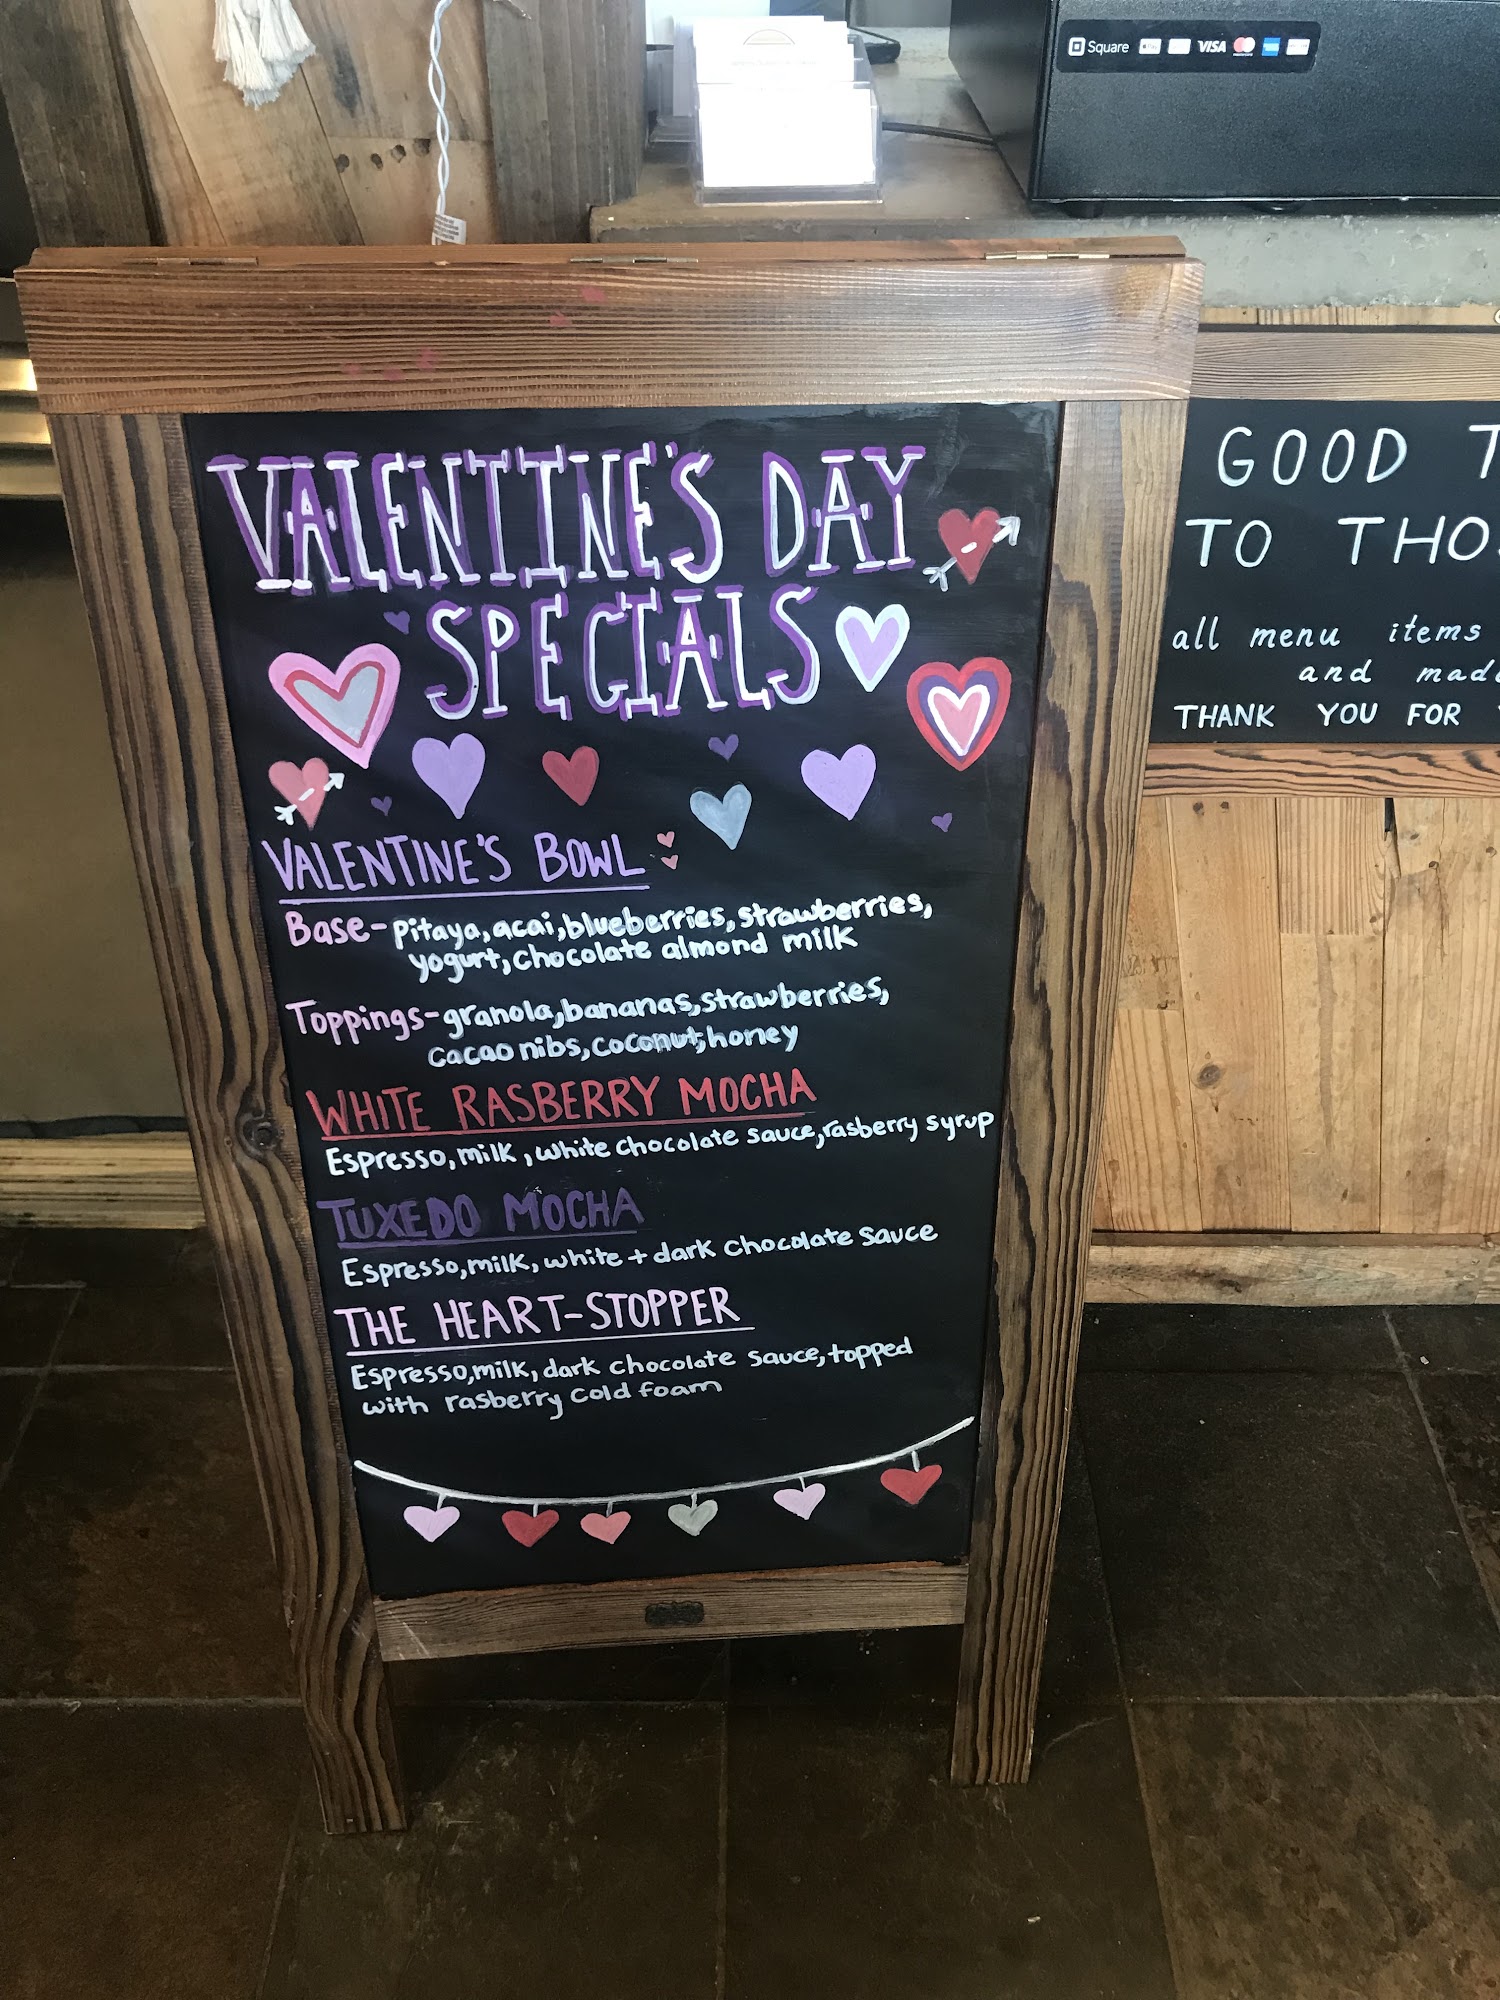 Square VISA
VALENTINE'S DAY
SPECIALS
VALENTINE'S BOWL
Base-pitaya, acai, blueberries, strawberries,
yogurt, chocolate almond milk
Toppings-granola, bananas, strawberries,
cacao nibs, coconut, honey
WHITE RASBERRY MOCHA
Espresso, milk, white chocolate sauce, rasberry syrup
TUXEDO MOCHA
Espresso, milk, white + dark chocolate sauce
THE HEART-STOPPER
Espresso, milk, dark chocolate sauce, topped
with rasberry cold foam
GOOD T
TO THOS
all menu items
and made
THANK YOU FOR